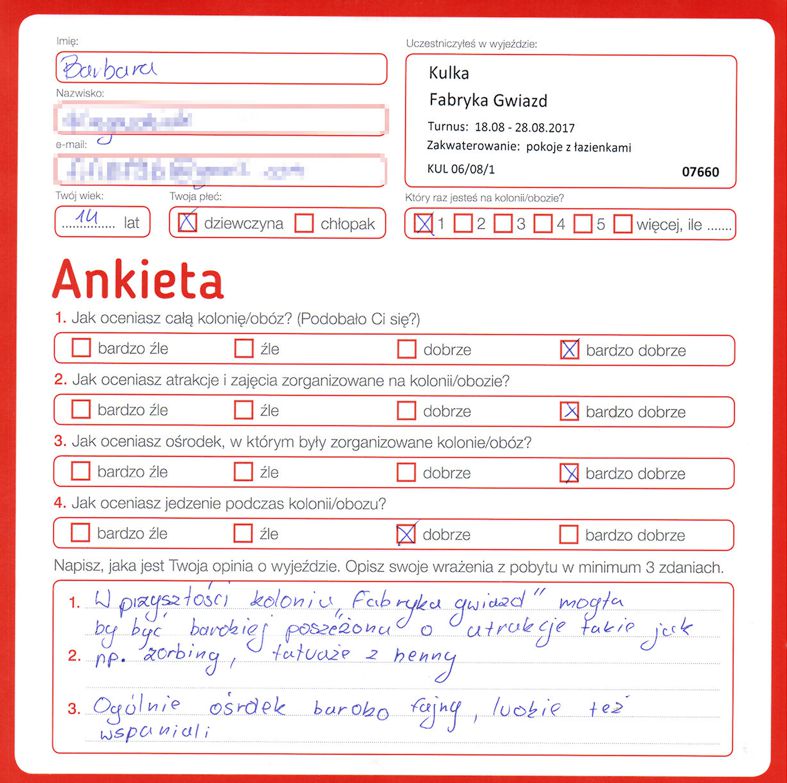 Imię:
Barbara
Uczestniczyłeś w wyjeździe:
Kulka
Fabryka Gwiazd
Turnus: 18.08 - 28.08.2017
Zakwaterowanie: pokoje z łazienkami
KUL 06/08/1 07660
Nazwisko:
e-mail:
Twój wiek:
14 lat
Twoja płeć:
dziewczyna chłopak
Który raz jesteś na kolonii/obozie?
1 2 3 4 5 więcej, ile .......
Ankieta
1. Jak oceniasz całą kolonię/obóz? (Podobało Ci się?)
bardzo źle źle dobrze bardzo dobrze
2. Jak oceniasz atrakcje i zajęcia zorganizowane na kolonii/obozie?
bardzo źle źle dobrze bardzo dobrze
3. Jak oceniasz ośrodek, w którym były zorganizowane kolonie/obóz?
bardzo źle źle dobrze bardzo dobrze
4. Jak oceniasz jedzenie podczas kolonii/obozu?
bardzo źle źle dobrze bardzo dobrze
Napisz, jaka jest Twoja opinia o wyjeździe. Opisz swoje wrażenia z pobytu w minimum 3 zdaniach.
1. W przyszłości kolonia „Fabryka gwiazd" mogła
by być bardziej poszeżona o atrakcje takie jak
2. np. zorbing, tatuaże z henny
3. Ogólnie ośrodek bardzo fajny, ludzie też
wspaniali